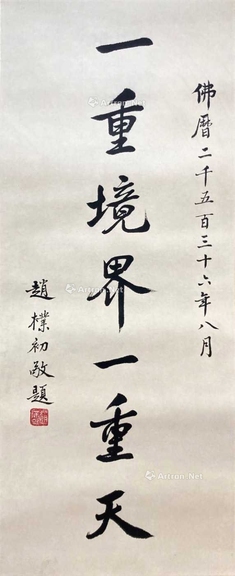 佛曆二千五百三十六年八月
一重境界一重天
趙樸初敬題